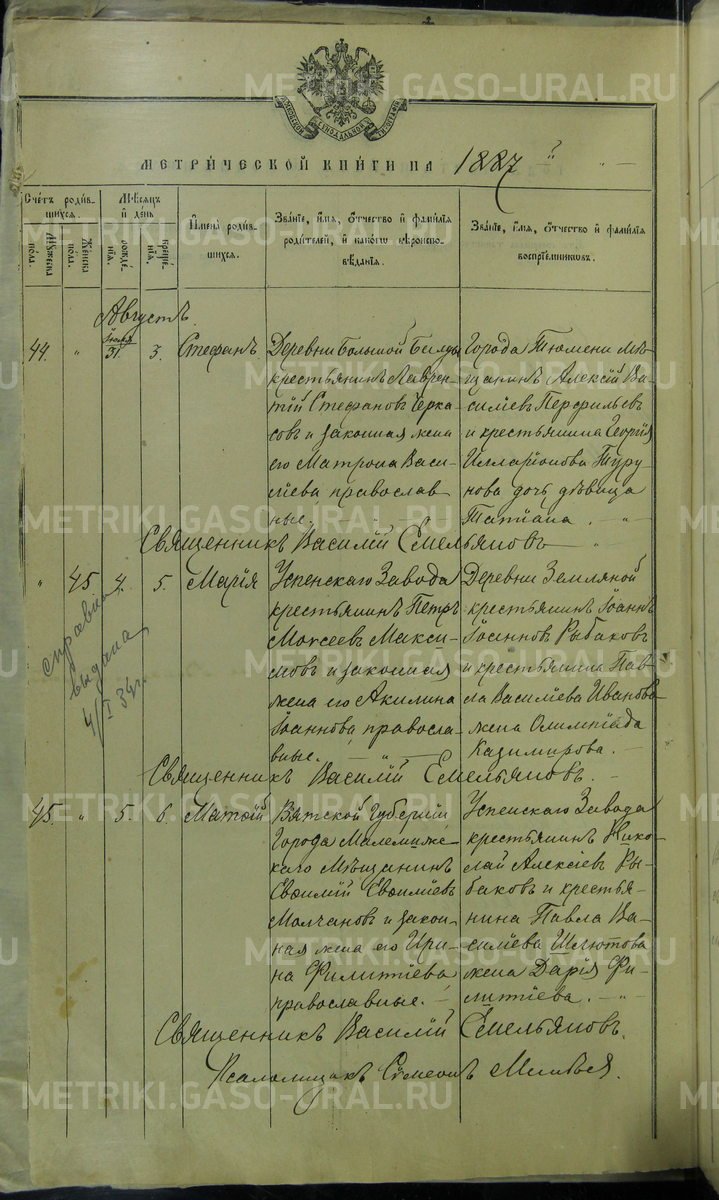 METRIKI.GASO-URAL.RU METRIKI.GASO-URAL.RU
МОСКОВСКОЙ СѴНОДАЛЬНОЙ ТИПОГРАФІИ
МЕТРИ́ЧЕСКОЙ КНИ́ГИ НА 1887
Сче́тъ роди́в-шихся.
Мѣсяцъ и день
Имена роди́в-шихся.
Зва́ніе, и́мя, о́тчество и фами́лія роди́телей, и како́гѡ вѣроиспо-вѣ́данія.
Зва́ніе, и́мя, о́тчество и фами́лія воспріе́мниковъ.
Мужеска пола.
Женска пола.
рожде́-нія.
креще́-нія.
Августъ
44. " Іюля 31 3. Стефанъ
Деревни Большой
крестьянинъ Лаврен-
тій Стефановъ Черка-
совъ и законная жена
его Матрона Васи-
ліева православ-
ные.
Города Тюмени мѣ-
щанинъ Алексій Ва-
силіевъ Перфильевъ
и крестьянина Георгія
Илларіонова Туру-
нова дочь дѣвица
Татіана.
Священникъ Василій Емельяновъ
" 45 4. 5. Марія
Успенскаго Завода
крестьянинъ Петръ
Моисеевъ Макси-
мовъ и законная
жена его Акилина
Іоаннова, правосла-
вные.
Деревни Земляной
крестьянинъ Іоаннъ
Іоанновъ Рыбаковъ
и крестьянина Пав-
ла Василіева Иванова
жена Олимпіада
Казимирова.
справка
выдана
4/I 34г.
Священникъ Василій Емельяновъ.
45. " 5. 6 Матѳій
Вятской Губерніи
Города Малмыж-
скаго Мѣщанинъ
Евѳимій Евѳиміевъ
Молчановъ и закон-
ная жена его Ири-
на Филиппіева
православные.
Успенскаго Завода
крестьянинъ Нико-
лай Алексіевъ Ры-
баковъ и крестья-
нина Павла Ва-
силіева
жена Дарія Фи-
липпіева.
Священникъ Василій Емельяновъ.
Псаломщикъ Сѵмеонъ